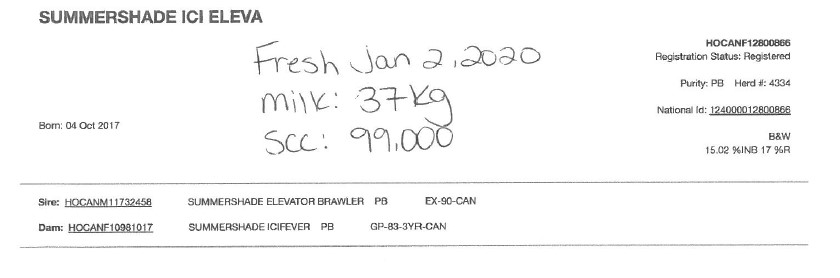 SUMMERSHADE ICI ELEVA
HOCANF12800866
Registration Status: Registered
Fresh Jan 2, 2020
Purity: PB Herd #: 4334
milk: 37kg
National Id: 124000012800866
Born: 04 Oct 2017
SCC: 99,000
B&W
15.02 %INB 17 %R
Sire: HOCANM11732458 SUMMERSHADE ELEVATOR BRAWLER PB EX-90-CAN
Dam: HOCANF10981017 SUMMERSHADE ICIFEVER PB GP-83-3YR-CAN